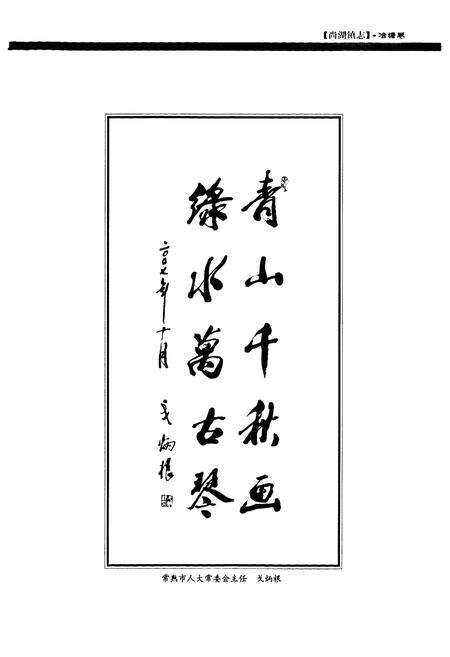 【尚湖镇志】·
青山千秋画
绿水萬古琴
二〇〇七年十月
戈炳根
常熟市人大常委会主任 戈炳根